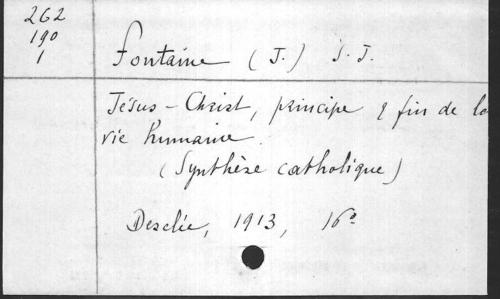 262
190
1
Fontaine (J.) S. J.
Jésus-Christ, principe & fin de la
vie humaine.
(Synthèse catholique)
Desclée, 1913, 16º